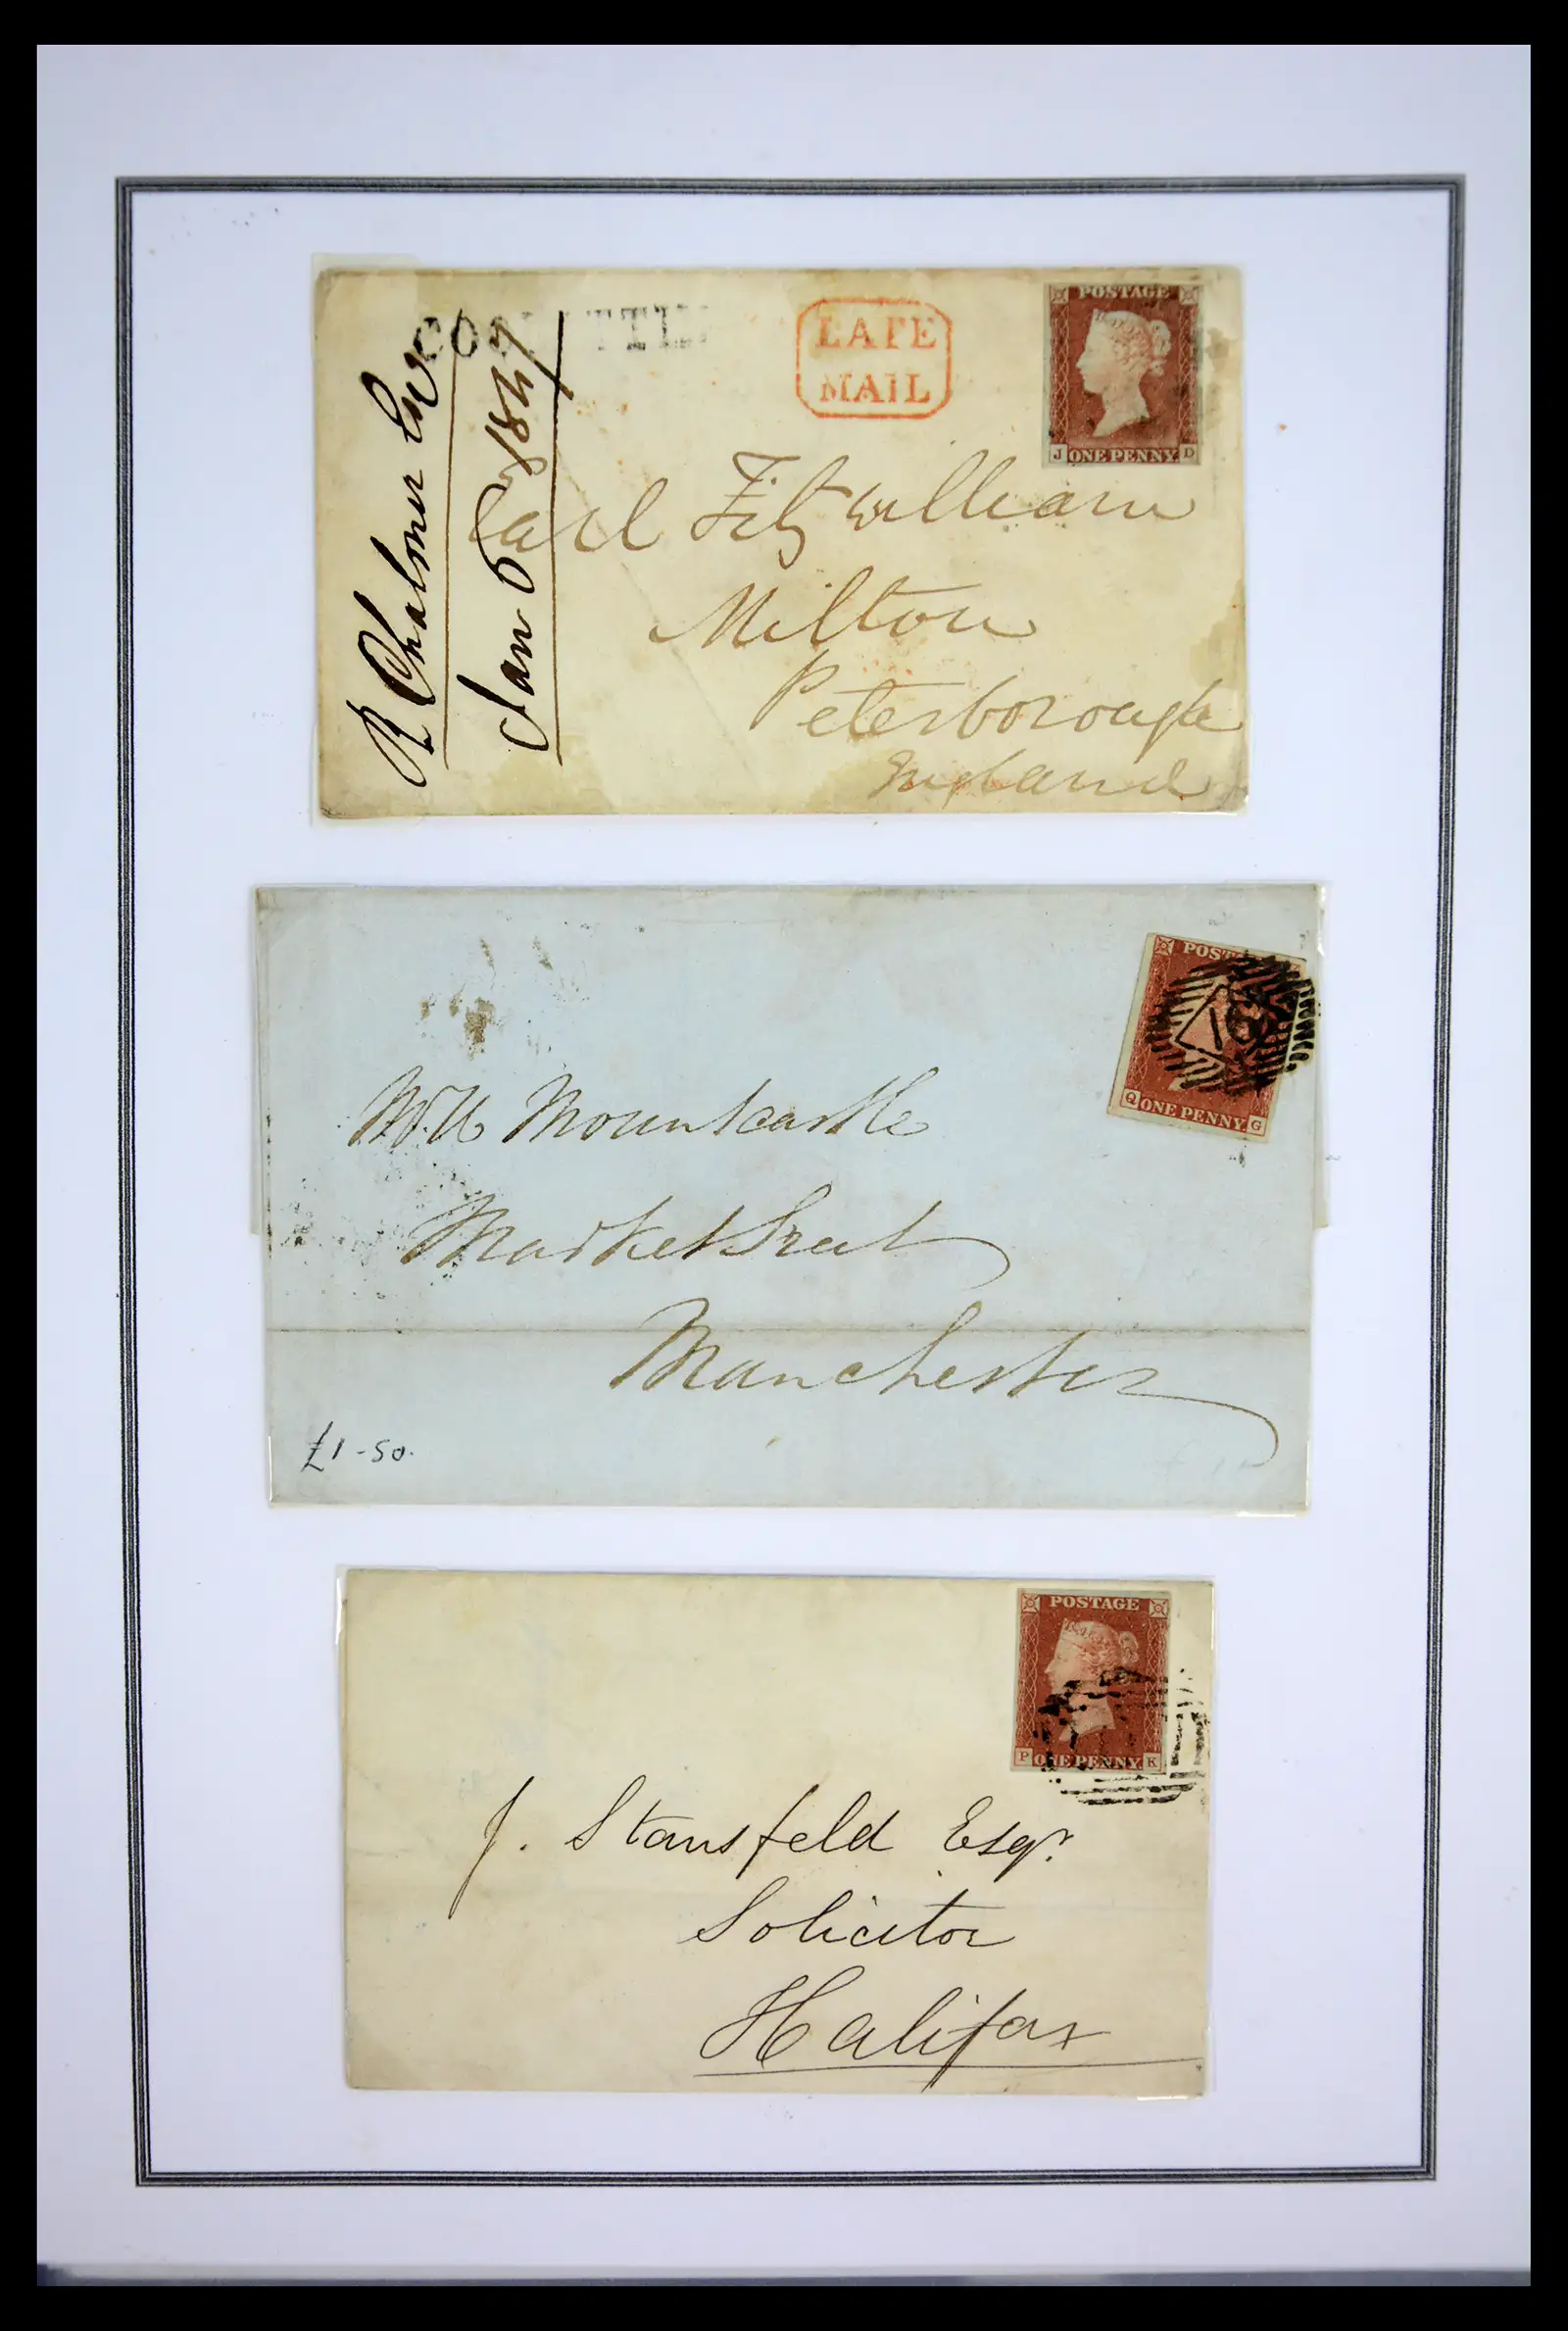 R Chaloner Esq
Jan 6 1847
LATE
MAIL
POSTAGE
J ONE PENNY D
Earl Fitzwilliam
Milton
Peterborough
England
POST
Q ONE PENNY G
Mountcastle
Market Street
Manchester
£1-50.
POSTAGE
P ONE PENNY K
J. Stansfeld Esqr.
Solicitor
Halifax